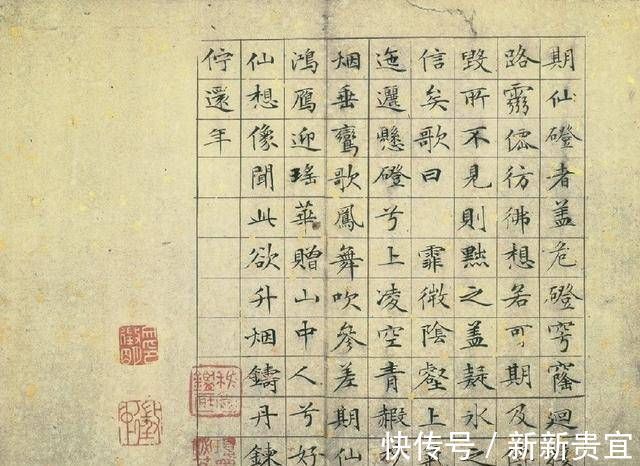 期仙磴者盖危磴穹窿迴
路靈僊彷彿想若可期及
毀所不見則黜之盖疑冰之
信矣歌曰 霏微陰壑上
迤邐懸磴兮上凌空青霞
烟垂鸞歌鳳舞吹參差期仙
鴻鴈迎瑤華贈山中人兮好
仙想像聞此欲升烟鑄丹鍊
佇還年
快传号/新新贵宜